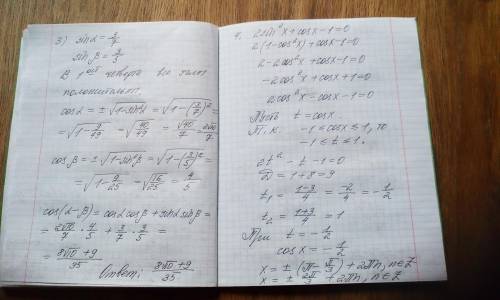 3) sin α = 3/7
sin β = 3/5
В 1 ой четверти все
положительны.
cos α = ± √1-sin²α = √1-(3/7)² =
= √1-9/49 = √40/49 = √40/7 = 2√10/7
cos β = ± √1-sin²β = √1-(3/5)² =
= √1-9/25 = √16/25 = 4/5
cos(α-β) = cos α cos β + sin α sin β =
= 2√10/7 · 4/5 + 3/7 · 3/5 =
= 8√10+9/35
Ответ: 8√10+9/35
2sin²x + cosx - 1 = 0
2(1-cos²x) + cosx - 1 = 0
2 - 2cos²x + cosx - 1 = 0
-2cos²x + cosx + 1 = 0
2cos²x - cosx - 1 = 0
Пусть t = cosx
Т.к. -1 ≤ cosx ≤ 1, то
-1 ≤ t ≤ 1.
2t² - t - 1 = 0
D = 1+8=9
t₁ = 1-3/4 = -2/4 = -1/2
t₂ = 1+3/4 = 1
При t = -1/2
cosx = -1/2
x = ± (π - π/3) + 2πn, n∈Z
x = ± 2π/3 + 2πn, n∈Z